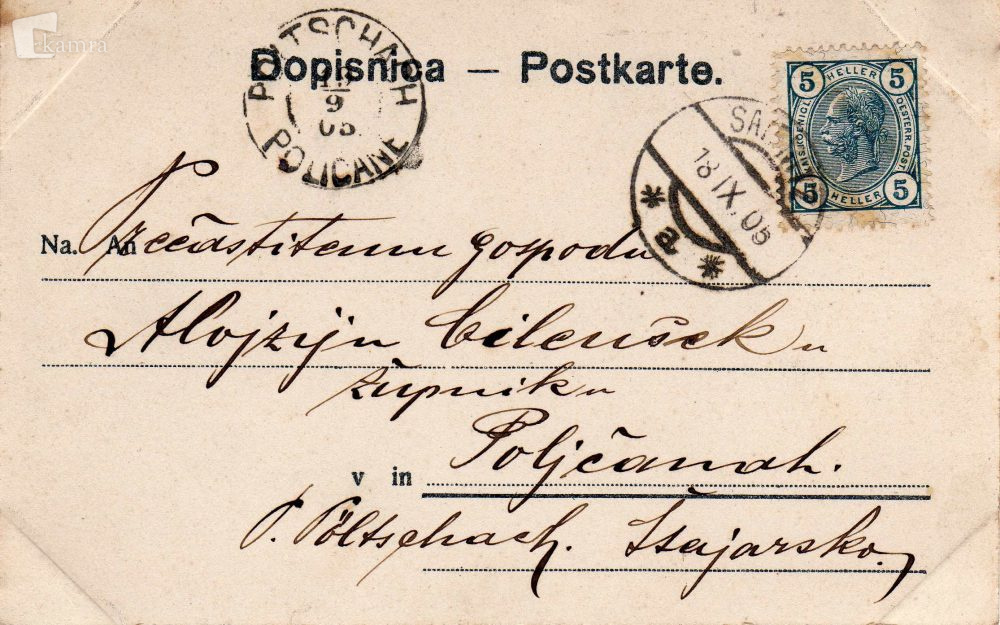 kamra
Dopisnica — Postkarte.
PÖLTSCHACH
9
05
POLIČANE
5 HELLER 5
OESTERR. POST
5 HELLER 5
18 IX. 05
a
Na. An Prečastitemu gospodu
Alojziju Cilenšek u
župniku
v in Poljčanah.
P. Pöltschach. Štajarsko,